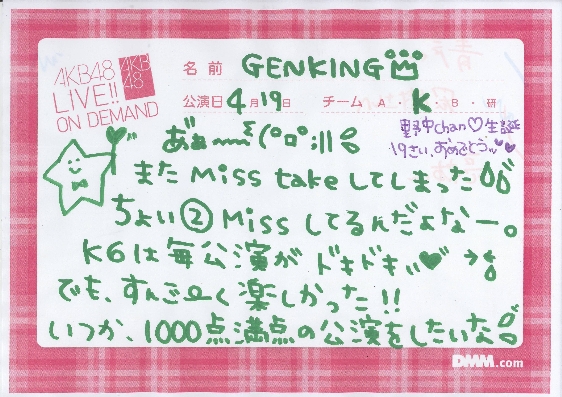 AKB48
LIVE!!
ON DEMAND
AKB
48
名前 GENKING
公演日 4月19日 チーム A・K・B・研
野中chan♡生誕
19さい、おめでとうッ♥♥
あ゛ぁ〰〰ξ(°ロ°;||
また Miss take してしまった
ちょい② Miss してるんだよなー。
K6は毎公演が ドキドキぃ♥
でも、すんごーく楽しかった!!
いつか、1000点満点の公演をしたいな
DMM.com